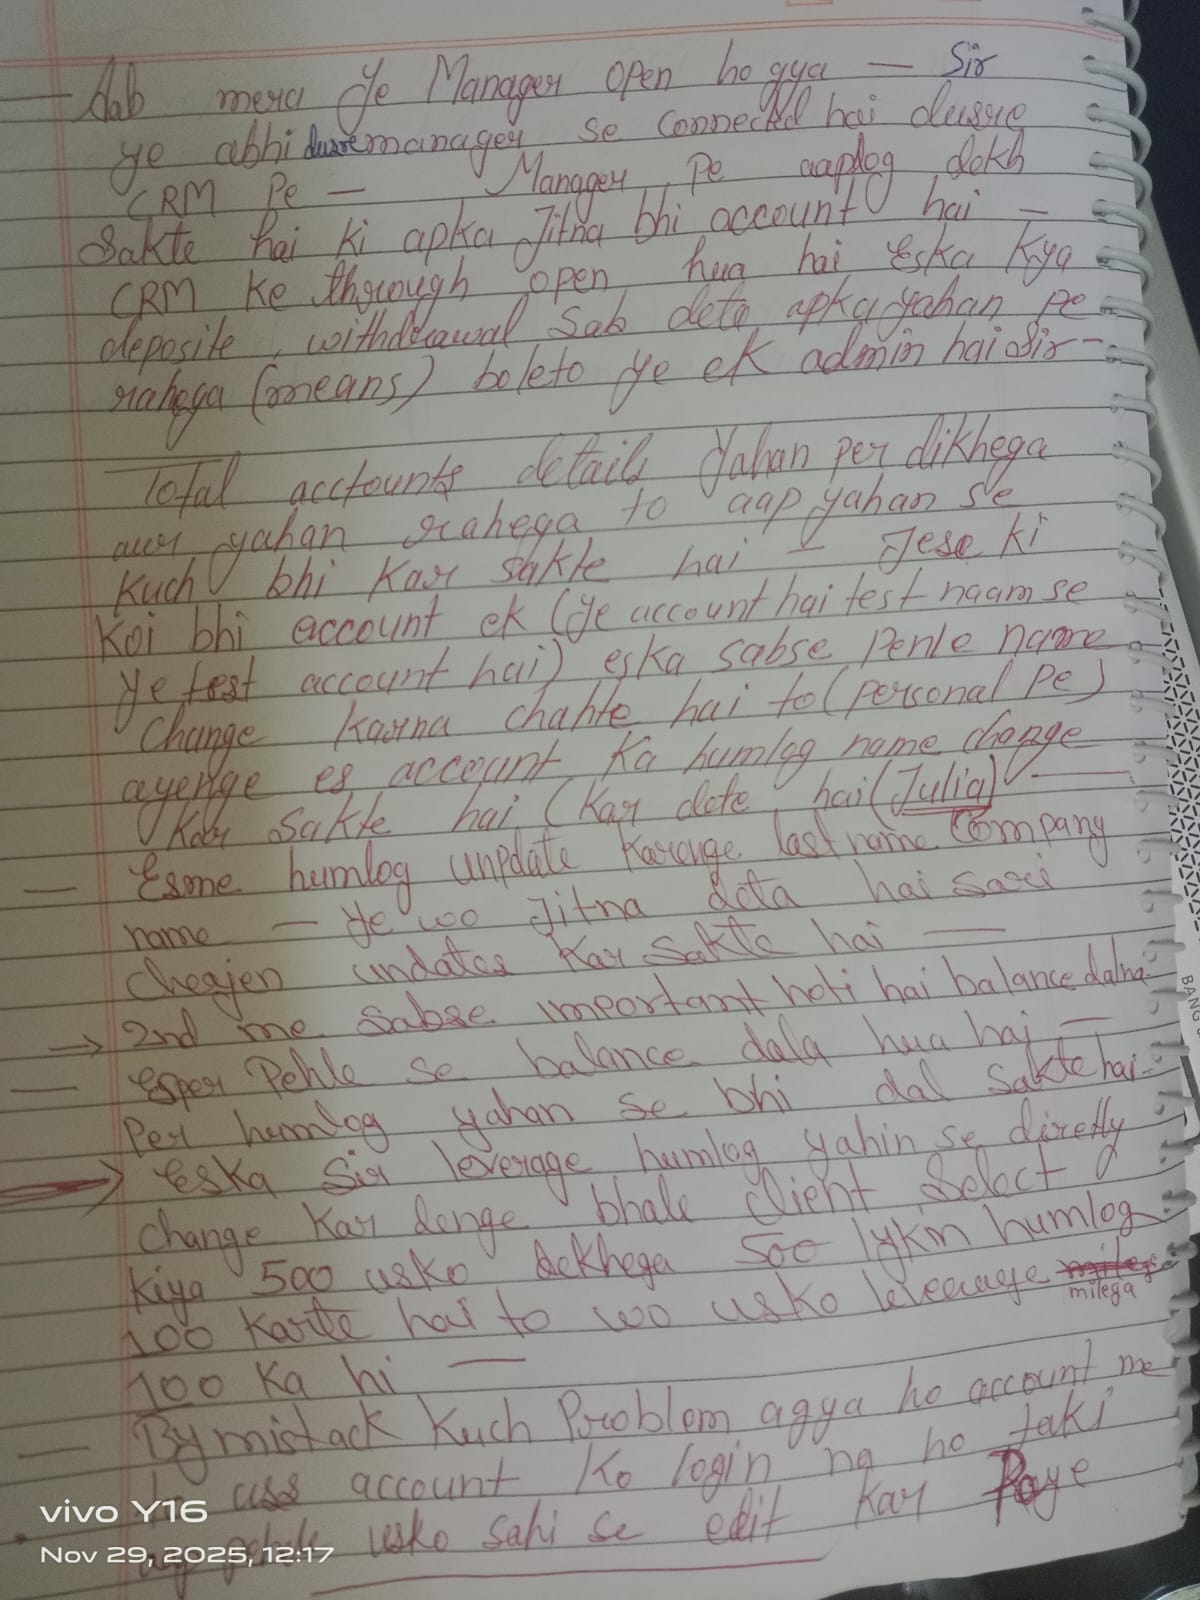 — Aab mera ye Manager open ho gya — Sir
ye abhi dusre manager se connected hai dusre
CRM Pe — Manager Pe aaplog dekh
Sakte hai ki apka Jitna bhi account hai —
CRM Ke through open hua hai eska Kya
deposite, withdrawal Sab deta apka yahan pe
rahega (means) boleto ye ek admin hai Sir -
Total acctounts details Yahan per dikhega
aur yahan rahega to aap yahan se
Kuch bhi Kar sakte hai — Jese ki
Koi bhi account ek (ye account hai test naam se
ye test account hai) eska sabse Pehle name
Change Karna chahte hai to (personal Pe)
ayenge es account Ka humlog name change
Kar Sakte hai (Kar dete hai (Julia) —
— Esme humlog unpdate Karenge last name Company
name — Ye wo Jitna deta hai sari
Cheajen undates Kar Sakte hai —
→ 2nd me Sabse important hoti hai balance dalna
— esper Pehle se balance dala hua hai —
Per humlog yahan se bhi dal Sakte hai -
→ eska Sir leverage humlog yahin se diretly
change Kar denge bhale Client Select
Kiya 500 usko dekhega 500 lykin humlog
100 Karte hai to wo usko leverage milega
100 Ka hi —
— By mistack Kuch Problem agya ho account me
uss account Ko login na ho taki
usko sahi se edit Kar Paye
vivo Y16
Nov 29, 2025, 12:17